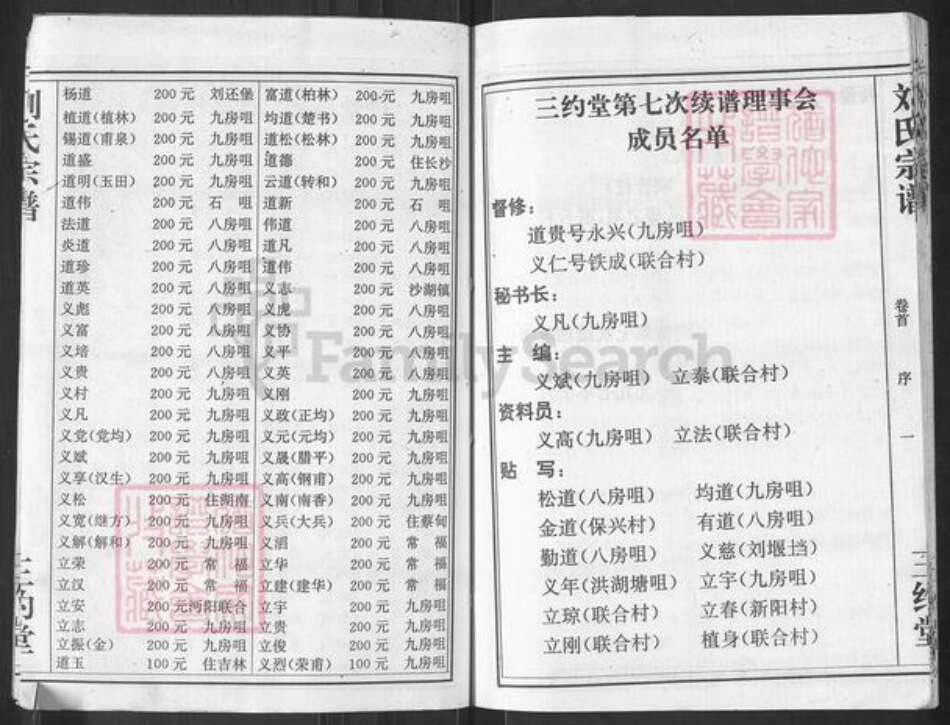 刘氏宗谱
杨道 200元 刘还堡 富道(柏林) 200元 九房咀
植道(植林) 200元 九房咀 均道(楚书) 200元 九房咀
锡道(甫泉) 200元 九房咀 道松(松林) 200元 九房咀
道盛 200元 九房咀 道德 200元 住长沙
道明(玉田) 200元 九房咀 云道(转和) 200元 九房咀
道伟 200元 石咀 道新 200元 石咀
法道 200元 八房咀 伟道 200元 八房咀
炎道 200元 八房咀 道凡 200元 八房咀
道珍 200元 八房咀 道伟 200元 八房咀
道英 200元 八房咀 义志 200元 沙湖镇
义彪 200元 八房咀 义虎 200元 八房咀
义富 200元 八房咀 义协 200元 八房咀
义培 200元 八房咀 义平 200元 八房咀
义贵 200元 八房咀 义英 200元 八房咀
义村 200元 九房咀 义刚 200元 九房咀
义凡 200元 九房咀 义政(正均) 200元 九房咀
义党(党均) 200元 九房咀 义元(元均) 200元 九房咀
义斌 200元 九房咀 义晟(腊平) 200元 九房咀
义享(汉生) 200元 九房咀 义高(钢甫) 200元 九房咀
义松 200元 住湖南 义南(南香) 200元 九房咀
义宽(继方) 200元 九房咀 义兵(大兵) 200元 住蔡甸
义解(解和) 200元 九房咀 义滔 200元 常福
立荣 200元 常福 立华 200元 常福
立汉 200元 常福 立建(建华) 200元 常福
立安 200元 沔阳联合 立宇 200元 九房咀
立志 200元 九房咀 立贵 200元 九房咀
立振(金) 200元 九房咀 立俊 200元 九房咀
道玉 100元 住吉林 义烈(荣甫) 100元 九房咀
三约堂
三约堂第七次续谱理事会
成员名单
督修：
道贵号永兴(九房咀)
义仁号铁成(联合村)
秘书长：
义凡(九房咀)
主 编：
义斌(九房咀) 立泰(联合村)
资料员：
义高(九房咀) 立法(联合村)
贴 写：
松道(八房咀) 均道(九房咀)
金道(保兴村) 有道(八房咀)
勤道(八房咀) 义慈(刘堰垱)
义年(洪湖塘咀) 立宇(九房咀)
立琼(联合村) 立春(新阳村)
立刚(联合村) 植身(联合村)
刘氏宗谱
卷首
序
一
三约堂
FamilySearch